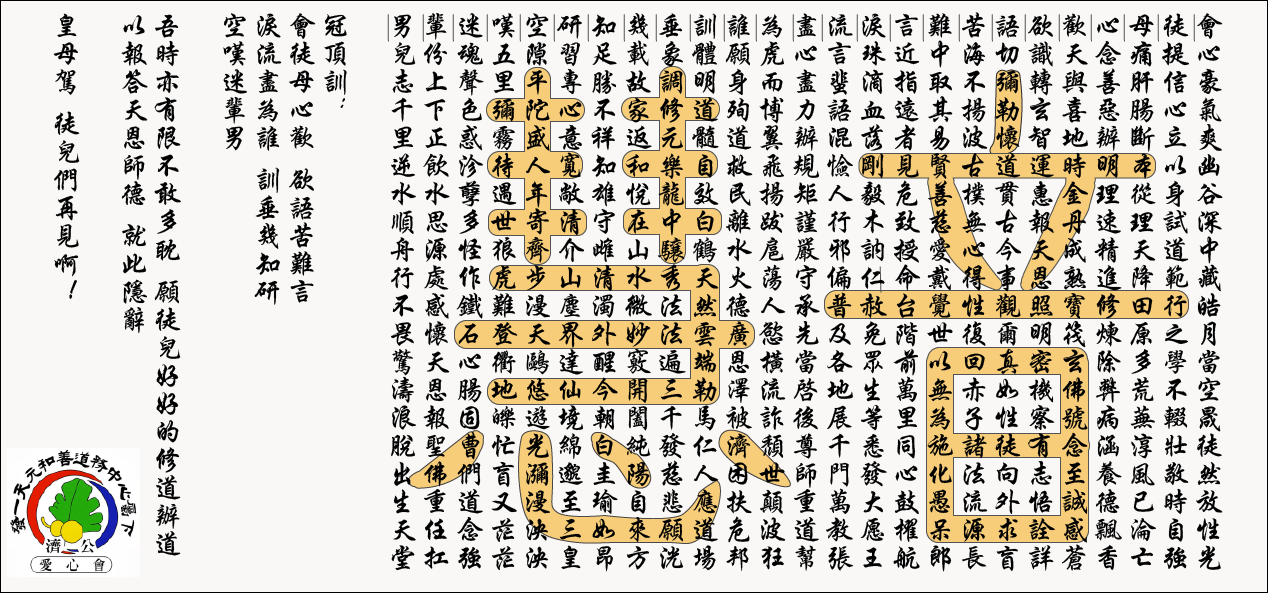 會心豪氣爽幽谷深中藏皓月當空晟徒然放性光
徒提信心立以身試道範行之學不輟壯敬時自強
母痛肝腸斷本從理天降田原多荒蕪淳風已淪亡
心念善惡辦明理速精進修煉除弊病涵養德飄香
歡天與喜地時金丹成熟寶筏玄佛號念至誠感蒼
欲識轉玄智運惠報天恩照明密機察有志悟詮詳
語切彌勒懷道貫古今事觀爾真如性徒向外求盲
苦海不揚波古撲無心得性復回赤子諸法流源長
難中取其易賢善慈愛戴覺世以無為施化愚呆郎
言近指遠者見危致授命台階前萬里同心鼓櫂航
淚珠滴血落剛毅木訥仁赦免眾生等悉發大愿王
流言蜚語混憸人行邪偏普及各地展千門萬教張
盡心盡力辦規矩謹嚴守承先當啓後尊師重道幫
為虎而博翼飛揚跋扈蕩人慾橫流詐頹世顛波狂
誰願身殉道救民離水火德廣恩澤被濟困扶危邦
訓體明道髓自效白鶴天然雲端勒馬仁人應道場
垂象調修元樂龍中驤秀法法遍三千發慈悲願洸
幾載故家返和悅在山水微妙竅開闔純陽自來方
知足勝不祥知雄守雌清濁外醒今朝白圭瑜如昂
研習專心意寬敞清介山塵界達仙境綿邈至三皇
空隙平陀盛人年寄齊步漫天鷗悠遊光瀰漫泱泱
嘆五里彌霧待遇世狼虎難登衢地皪忙盲又茫茫
迷魂聲色惑沴孽多怪作鐵石心腸固曹們道念強
輩份上下正飲水思源處感懷天恩報聖佛重任扛
男兒志千里逆水順舟行不畏驚濤浪脫出生天堂
冠頂訓:
會徒母心歡 欲語苦難言
淚流盡為誰 訓垂幾知研
空嘆迷輩男
吾時亦有限不敢多耽 願徒兒好好的修道辦道
以報答天恩師德 就此隱辭
皇母駕 徒兒們再見啊!
發一天元和善道務中心屬下
濟公
愛心會